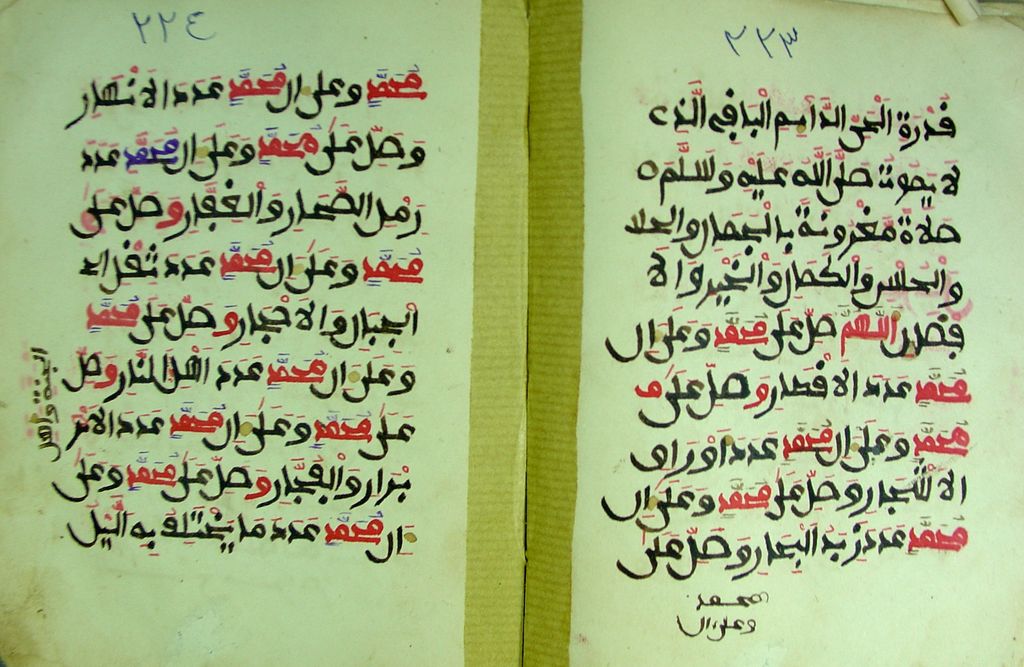 ٢٢٣
قدرة الحي الدايم الباقي الذي
لا يموت صلى الله عليه وسلم
صلاة مقرونة بالجمال والجلا
والحسن والكمال والخير والا
فضل اللهم صل على محمد وعلى ال
محمد عدد الاقطار وصل على م
محمد وعلى ال محمد عدد اوراق
الاشجار وصل على محمد وعلى ال
محمد عدد زبد البحار وصل على
محمد
وعلى ال
٢٢٤
محمد وعلى ال محمد عدد الانهار
وصل على محمد وعلى ال محمد عدد
رمل الصحار والقفار وصل على
محمد وعلى ال محمد عدد ثقل ا
لجبال والاحجار وصل على محمد
وعلى ال محمد عدد اهل النار وصل
الجنة واهل
على محمد وعلى ال محمد عدد الا
برار والفجار وصل على محمد وعلى
ال محمد عدد ما يختلف به اليل